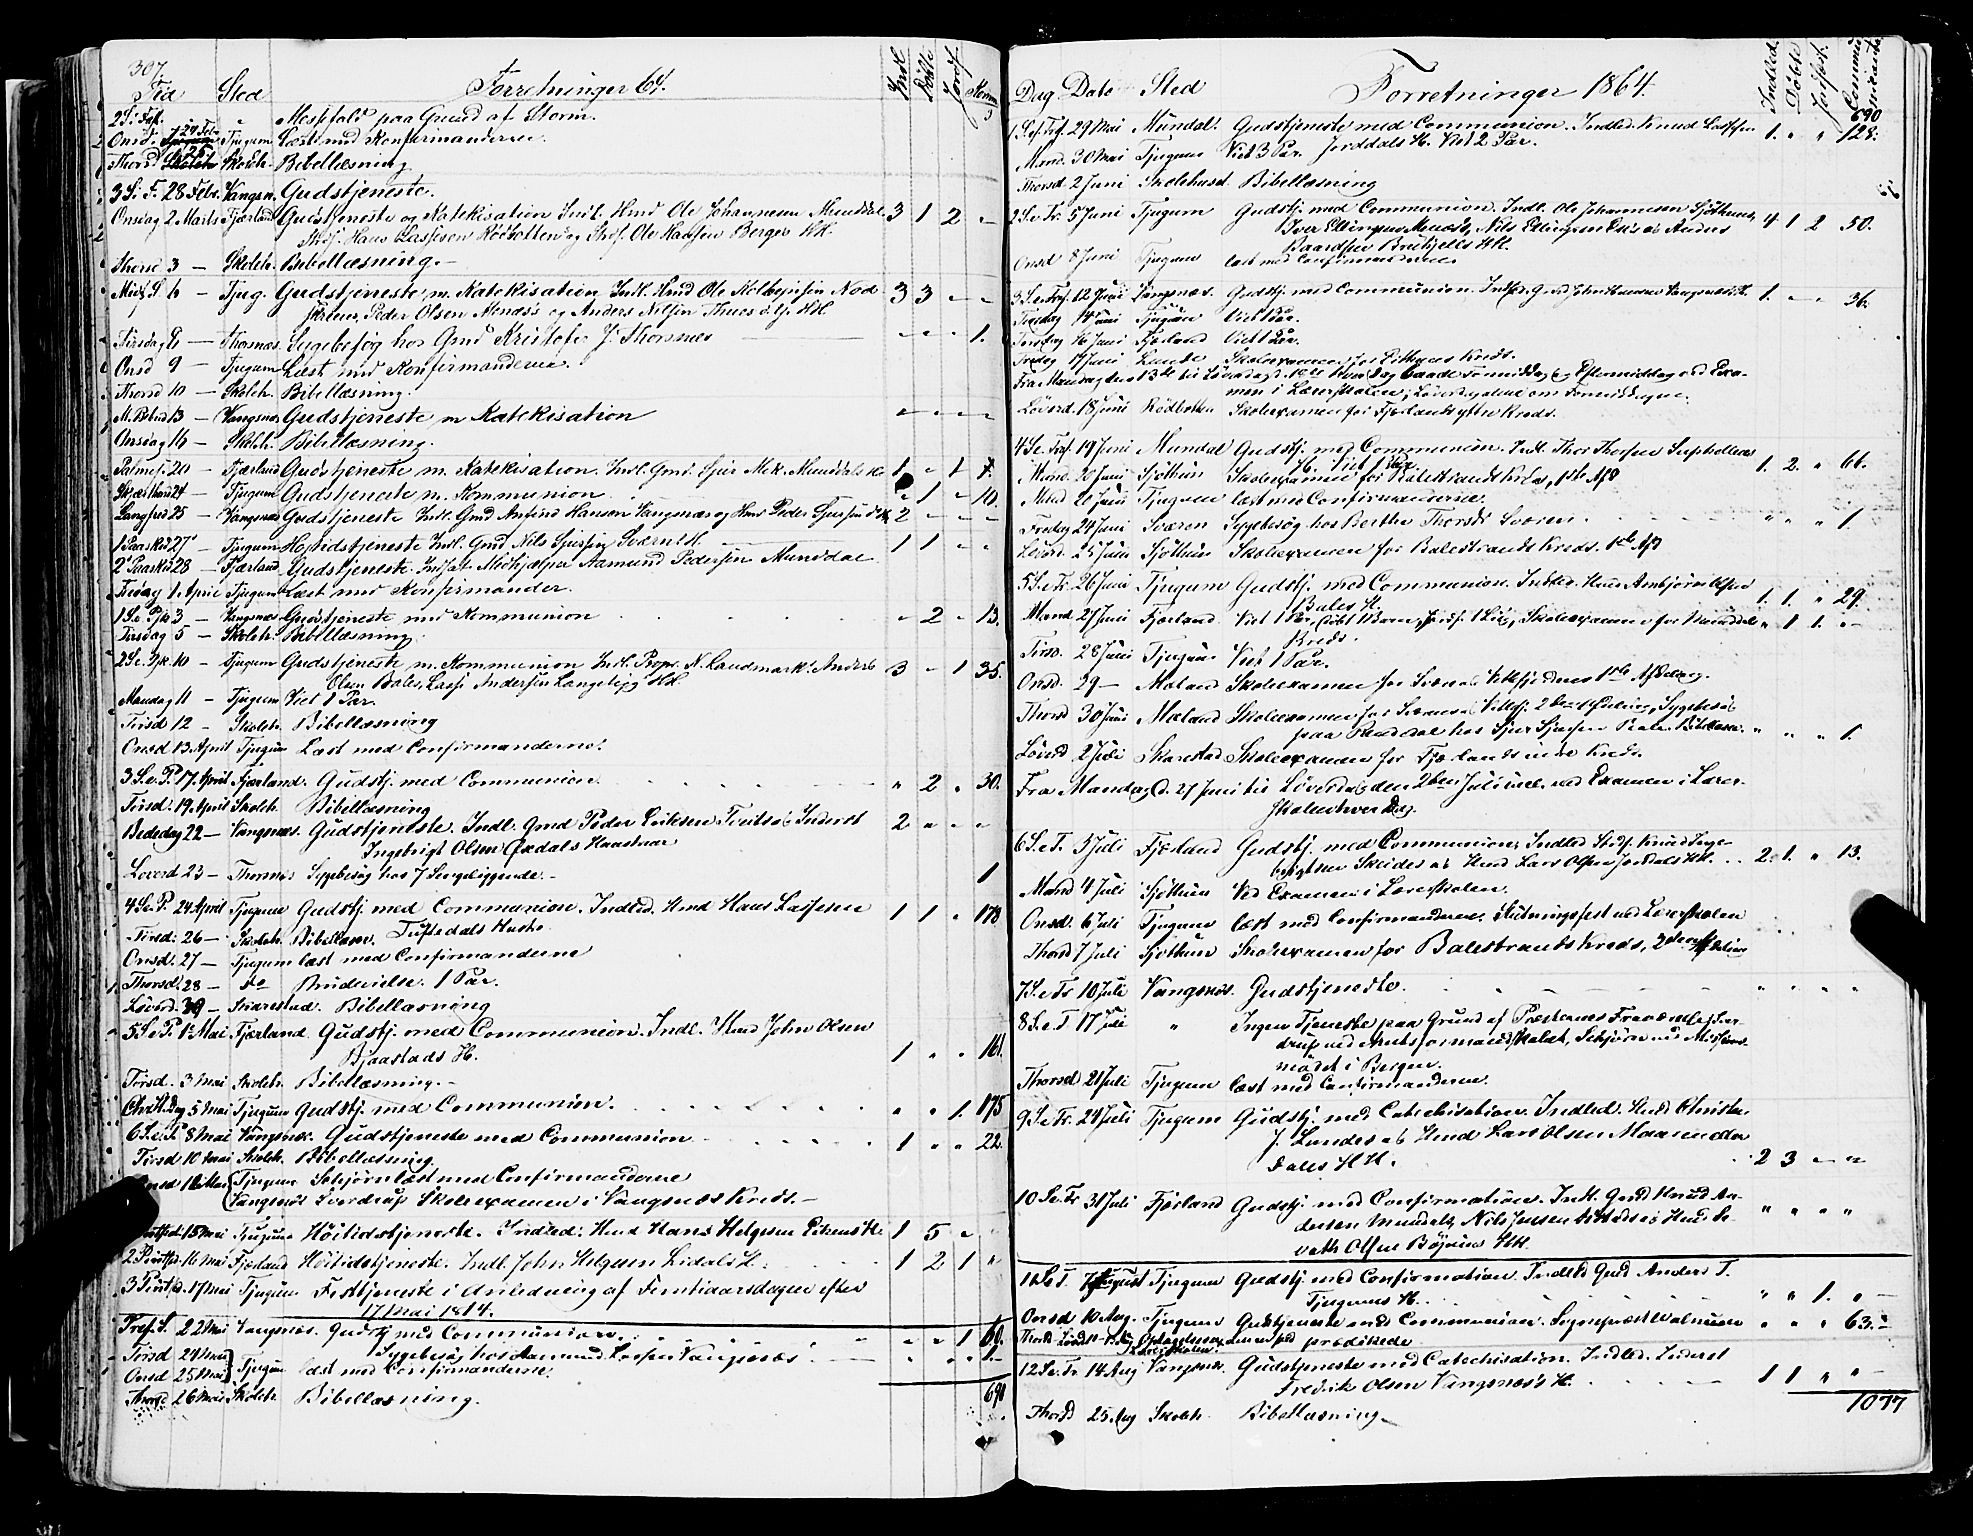 307
Tid Sted Forretninger 64. Indl. Døbte Jordf. Komm
2 S. i Fast. " Messefald paa Grund af Storm.
Onsd. 24 Feb. Tjugum Læst med Konfirmanderne.
Thorsd 25 Skoleh. Bibellæsning
3 S. i F. 28 Febr. Vangsn. Gudstjeneste.
Onsdag 2 Marts Fjærland Gudstjeneste og Katekisation Indl. Hmd Ole Johannesen Mundal 3 1 2 "
Skdsf. Hans Lassesen Rødbotten og Skdsf. Ole Hansen Berges HH.
Thorsd 3 — Skoleh. Bibellæsning.
Midf. S. 6 — Tjug. Gudstjeneste m. Katekisation Indl. Hmd Ole 3 3 - -
Peder Olsen Menæs's og Anders Nilsen HH.
Tirsdag 8 — Thorsnæs. Sygebesøg hos Gmd Kristofer J. Thorsnæs 1.
Onsd 9 — Tjugum Læst med Konfirmanderne.
Thorsd 10 — Skoleh. Bibellæsning.
M. Bebud 13 — Vangsnæs Gudstjeneste m Katekisation - - - -
Onsdag 16 — Skoleh. Bibellæsning.
Palmes. 20 — Fjærland Gudstjeneste m. Katekisation. Indl. Gmd. Sjur Mik. Munddals Ko 1 - 1
Skjærthorsd 24 — Tjugum Gudstjeneste m. Kommunion. - 1 - 10.
Langfred 25 — Vangsnæs Gudstjeneste Indl. Gmd Anfind Hansen Vangsnæs og Hmd Peder 2 - - -
1 Paaskd 27 — Tjugum Højtidstjeneste Indl. Gmd Nils Sjursen Sværens H. 1 1 - -
2 Paaskd 28 — Fjærland Gudstjeneste. Indsat Medhjælper Aamund Pedersen Munddal
Fredag 1 April Tjugum Læst med Konfirmander.
1 S. e. Pjk 3 — Vangsnæs Gudstjeneste med Kommunion - 2 - 13.
Tirsdag 5 — Skoleh. Bibellæsning.
2 S. e. Pjk. 10 — Tjugum Gudstjeneste m. Kommunion Indl. Propr. N. Landmark's Anders 3 - 1 35.
Olsen Bales, Lasse Andersen Langeteig's HH.
Mandag 11 — Tjugum Viet 1 Par.
Tirsd 12 — Skoleh. Bibellæsning
Onsd 13 April Tjugum Læst med Confirmanderne.
3 S. e. P. 17 April Fjærland. Gudstj. med Communion. " 2 " 30.
Tirsd. 19 April Skoleh. Bibellæsning
Bededag 22 — Vangsnæs. Gudstjeneste. Indl. Gmd Peder Eriksen Inderst 2 " " "
Ingebrigt Olsen Haastuer
Løverd 23 — Thorsnæs Sygebesøg hos 7 Sengeliggende. 1
4 S. e. P. 24 April Tjugum Gudstj. med Communion. Indled. Hmd Hans Lassesen 1 1 " 178
Tirsd. 26 — Skoleh. Bibellæsn. Tuftedals Hustr.
Onsd. 27 — Tjugum læst med Confirmanderne
Thorsd. 28 — do Brudevielse. 1 Par.
Løverd. 30 — Skarestad. Bibellæsning
5 S. e. P. 1 Mai Fjærland. Gudstj. med Communion. Indl. Hmd John Olsen
Bjaastads H. 1 " " 161.
Tirsd. 3 Mai Skoleh. Bibellæsning.
Chr. H. Dag 5 Mai Tjugum Gudstj. med Communion. " " 1. 175
6 S. e. P 8 Mai Vangsnæs. Gudstjeneste med Communion 1 " " 22.
Tirsd 10 Mai Skoleh. Bibellæsning.
Onsd 11 Mai Tjugum læst med Confirmanderne
Vangsnæs Sverdrup Skoleexamen i Vangsnæs Kreds.
15 Mai Tjugum Høitidstjeneste. Indled. Hmd Hans Helgesen H. 1 5 " "
2 Pintsd. 16 Mai Fjærland Høitidstjeneste. Indl. John Helgesen Lidals H. 1 2 1 "
3 Pintsd. 17 Mai Tjugum Festtjeneste i Anledning af Femtiaarsdagen efter
17 Mai 1814.
Tref. S. 22 Mai Vangsnæs. Gudstj med Communion. " " 1 60.
Sygebesøg hos Aamund Vangsnæs " " " 1.
Tirsd 24 Mai
Onsd 25 Mai Tjugum læst med Confirmanderne. 690
Thorsd 26 Mai Skoleh Bibellæsning.
Dag Dato Sted Forretninger 1864. Indled. Døbte Jordf. Communicanter
690
1 S. e. Tref. 29 Mai Mundal. Gudstjeneste med Communion. Indled. Knud 1. " " 128.
Mand. 30 Mai Tjugum Viet 3 Par. Jorddals H. Viet 2 Par.
Thorsd 2 Juni Skolehuset Bibellæsning
2 S. e. Tr. 5 Juni Tjugum Gudstj. med Communion. Indl. Ole Johannesen Sjøthuns, 4 1 2 50.
Iver Ellingsens Menæs's, Nils Ellingsen og Anders
Baardsen HH.
Onsd 8 Juni Tjugum læst med Confirmanderne
3 S. e. Tref. 12 Juni Vangsnæs. Gudstj. med Communion. Indled. Gmd John Vangsnæs H. 1. - - 36.
Tirsdag 14 Juni Tjugum Viet 1 Par.
Torsdag 16 Juni Fjærland Viet 1 Par.
Fredag 17 Juni Lunde Skoleexamen for Kreds.
Fra Mandag den 13de til Løverdag d. 18de hver Dag baade Formiddag og Eftermiddag ved Exa-
men i Lærerskolen; Løverdag alene om Formiddagen.
Løverd. 18 Juni Rødbotten Skoleexamen for Fjærlands yttre Kreds.
4 S. e. Tref. 19 Juni Mundal Gudstj. med Communion. Indl. Thor Thorsen Supphellens
H. Viet 1 Par. 1. 2. " 66.
Mand. 20 Juni Sjøthun Skoleexamen for Balestrands Kreds, 1ste Afd
21 Juni Tjugum læst med Confirmanderne.
Fredag 24 Juni Sværen Sygebesøg hos Berthe Thorsd. Sværen. " " " 1
Løverd. 25 Juni Sjøthun Skoleexamen for Balestrands Kreds. 1ste Afd
5 S. e. Tr. 26 Juni Tjugum Gudstj. med Communion. Indled. Hmd
Bales H. 1. 1. " 29.
Mand 27 Juni Fjærland Viet 1 Par, døbt 1 Barn, Jordf. 1 Lig, Skoleexamen for Mundals " 1 1. "
Kreds.
Tirsd. 28 Juni Tjugum Viet 1 Par.
Onsd. 29 — Mæland Skoleexamen for Sværens & Vetlefjordens 1ste Afdeling.
Thorsd 30 Juni Mæland Skoleexamen for Sværens & Vetlefj. 2den Afdeling, Sygebesøg
paa hos Sjur Sjursen " " " 1
Løverd 2 Juli Skarestad Skoleexamen for Fjærlands indre Kreds.
Fra Mandag d. 27 Juni til Løverdag den 2den Juli incl. ved Examen i Lærer-
skolen hver Dag.
6 S. e. T. 3 Juli Fjærland Gudstj. med Communion, Indled Skdsf. Knud Inge-
brigtsen Skeides og Hmd Lars Olsen Jorddals HH. 2. 1. " 13.
Mand 4 Juli Sjøthun Ved Examen i Lærerskolen.
Onsd. 6 Juli Tjugum læst med Confirmanderne. Slutningsfest ved Lærerskolen
Thorsd 7 Juli Sjøthun Skoleexamen for Balestrands Kreds, 2den Afdeling
7 S. e. Tr. 10 Juli Vangsnæs. Gudstjeneste. " " " "
8 S. e. T. 17 Juli " Ingen Tjeneste paa Grund af Præsternes Fraværelse, Sver-
drup ved Amtsformandskabet, Sebjørn ved Missions-
mødet i Bergen.
Thorsd 21 Juli Tjugum læst med Confirmanderne.
9 S. e. Tr. 24 Juli Tjugum Gudstj. med Catechisation. Indled. Hmd Christen
J. Lundes og Hmd Lars Olsen
Dales HH. 2 3 " "
10 S. e. Tr 31 Juli Fjærland Gudstj. med Confirmation. Indl. Gmd Knud An-
dersen Mundals, Nils Jensen og Hmd
Olsen Bøjums HH. " " " "
11 S. e. T. 7 August Tjugum Gudstj. med Confirmation. Indled Gmd. Anders T.
Tjugums H. " " 1. "
Onsd 10 Aug. Tjugum Gudstjeneste med Communion. Sogneprest " " " 63.
prædikede
12 S. e. Tr. 14 Aug Vangsnæs. Gudstjeneste med Catechisation. Indled. Inderst
Fredrik Olsen Vangsnæs's H. 1 1 " "
1077
Thorsd 25 Aug Skoleh. Bibellæsning